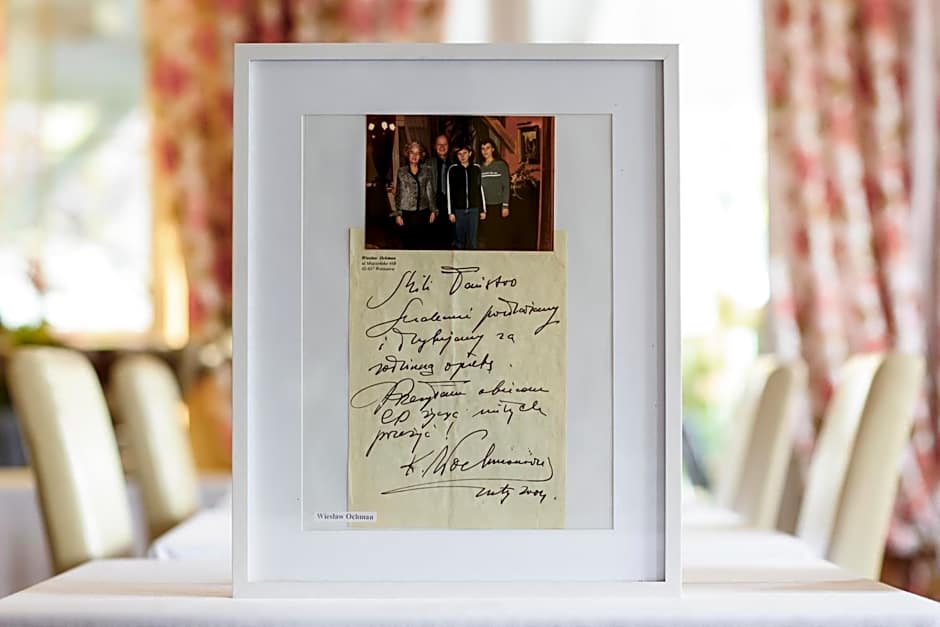 Wiesław Ochman
Mili Państwo
Serdecznie pozdrawiamy
i dziękujemy za
rodzinną opiekę.
Przesyłam obiecane
CD życząc miłych
przeżyć!
luty 2004.
Wiesław Ochman